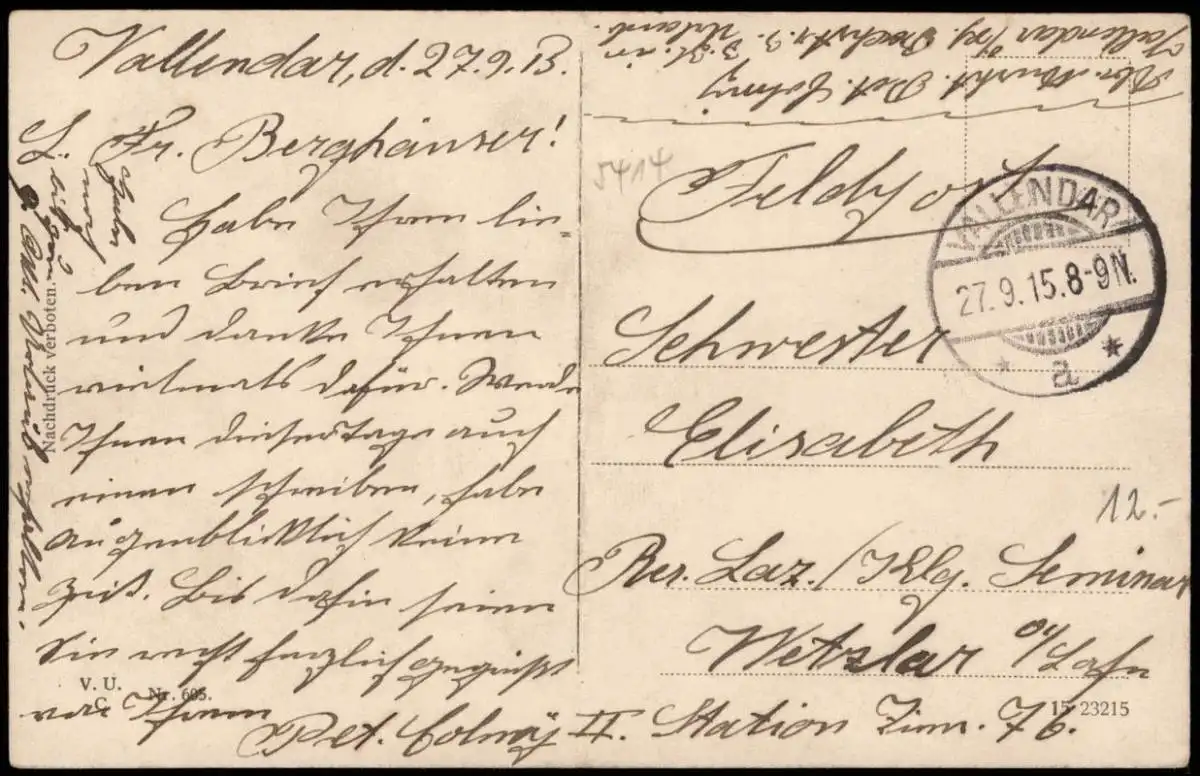 Vallendar, d. 27.9.15.
L. Fr. Berghäuser!
Habe Ihren lie-
ben Brief erhalten
und danke Ihnen
vielmals dafür. Werde
Ihnen dieser Tage auch
einen schreiben, habe
augenblicklich keine
Zeit. Bis dahin seien
Sie recht herzlich gegrüßt
von Ihrem
Pet.
Haben
mich
Bild
erhalten.
Nachdruck verboten.
V. U.
C.
Nr. 605.
Abs. Musk. Pet.
Vallendar
3. Zt. in
5414
Feldpost
VALLENDAR
27.9.15.8-9N.
* a *
Schwester
Elisabeth
12.-
Res. Laz. / Klg. Seminar
Wetzlar a/Lahn
II. Station Zim. 76.
15 23215